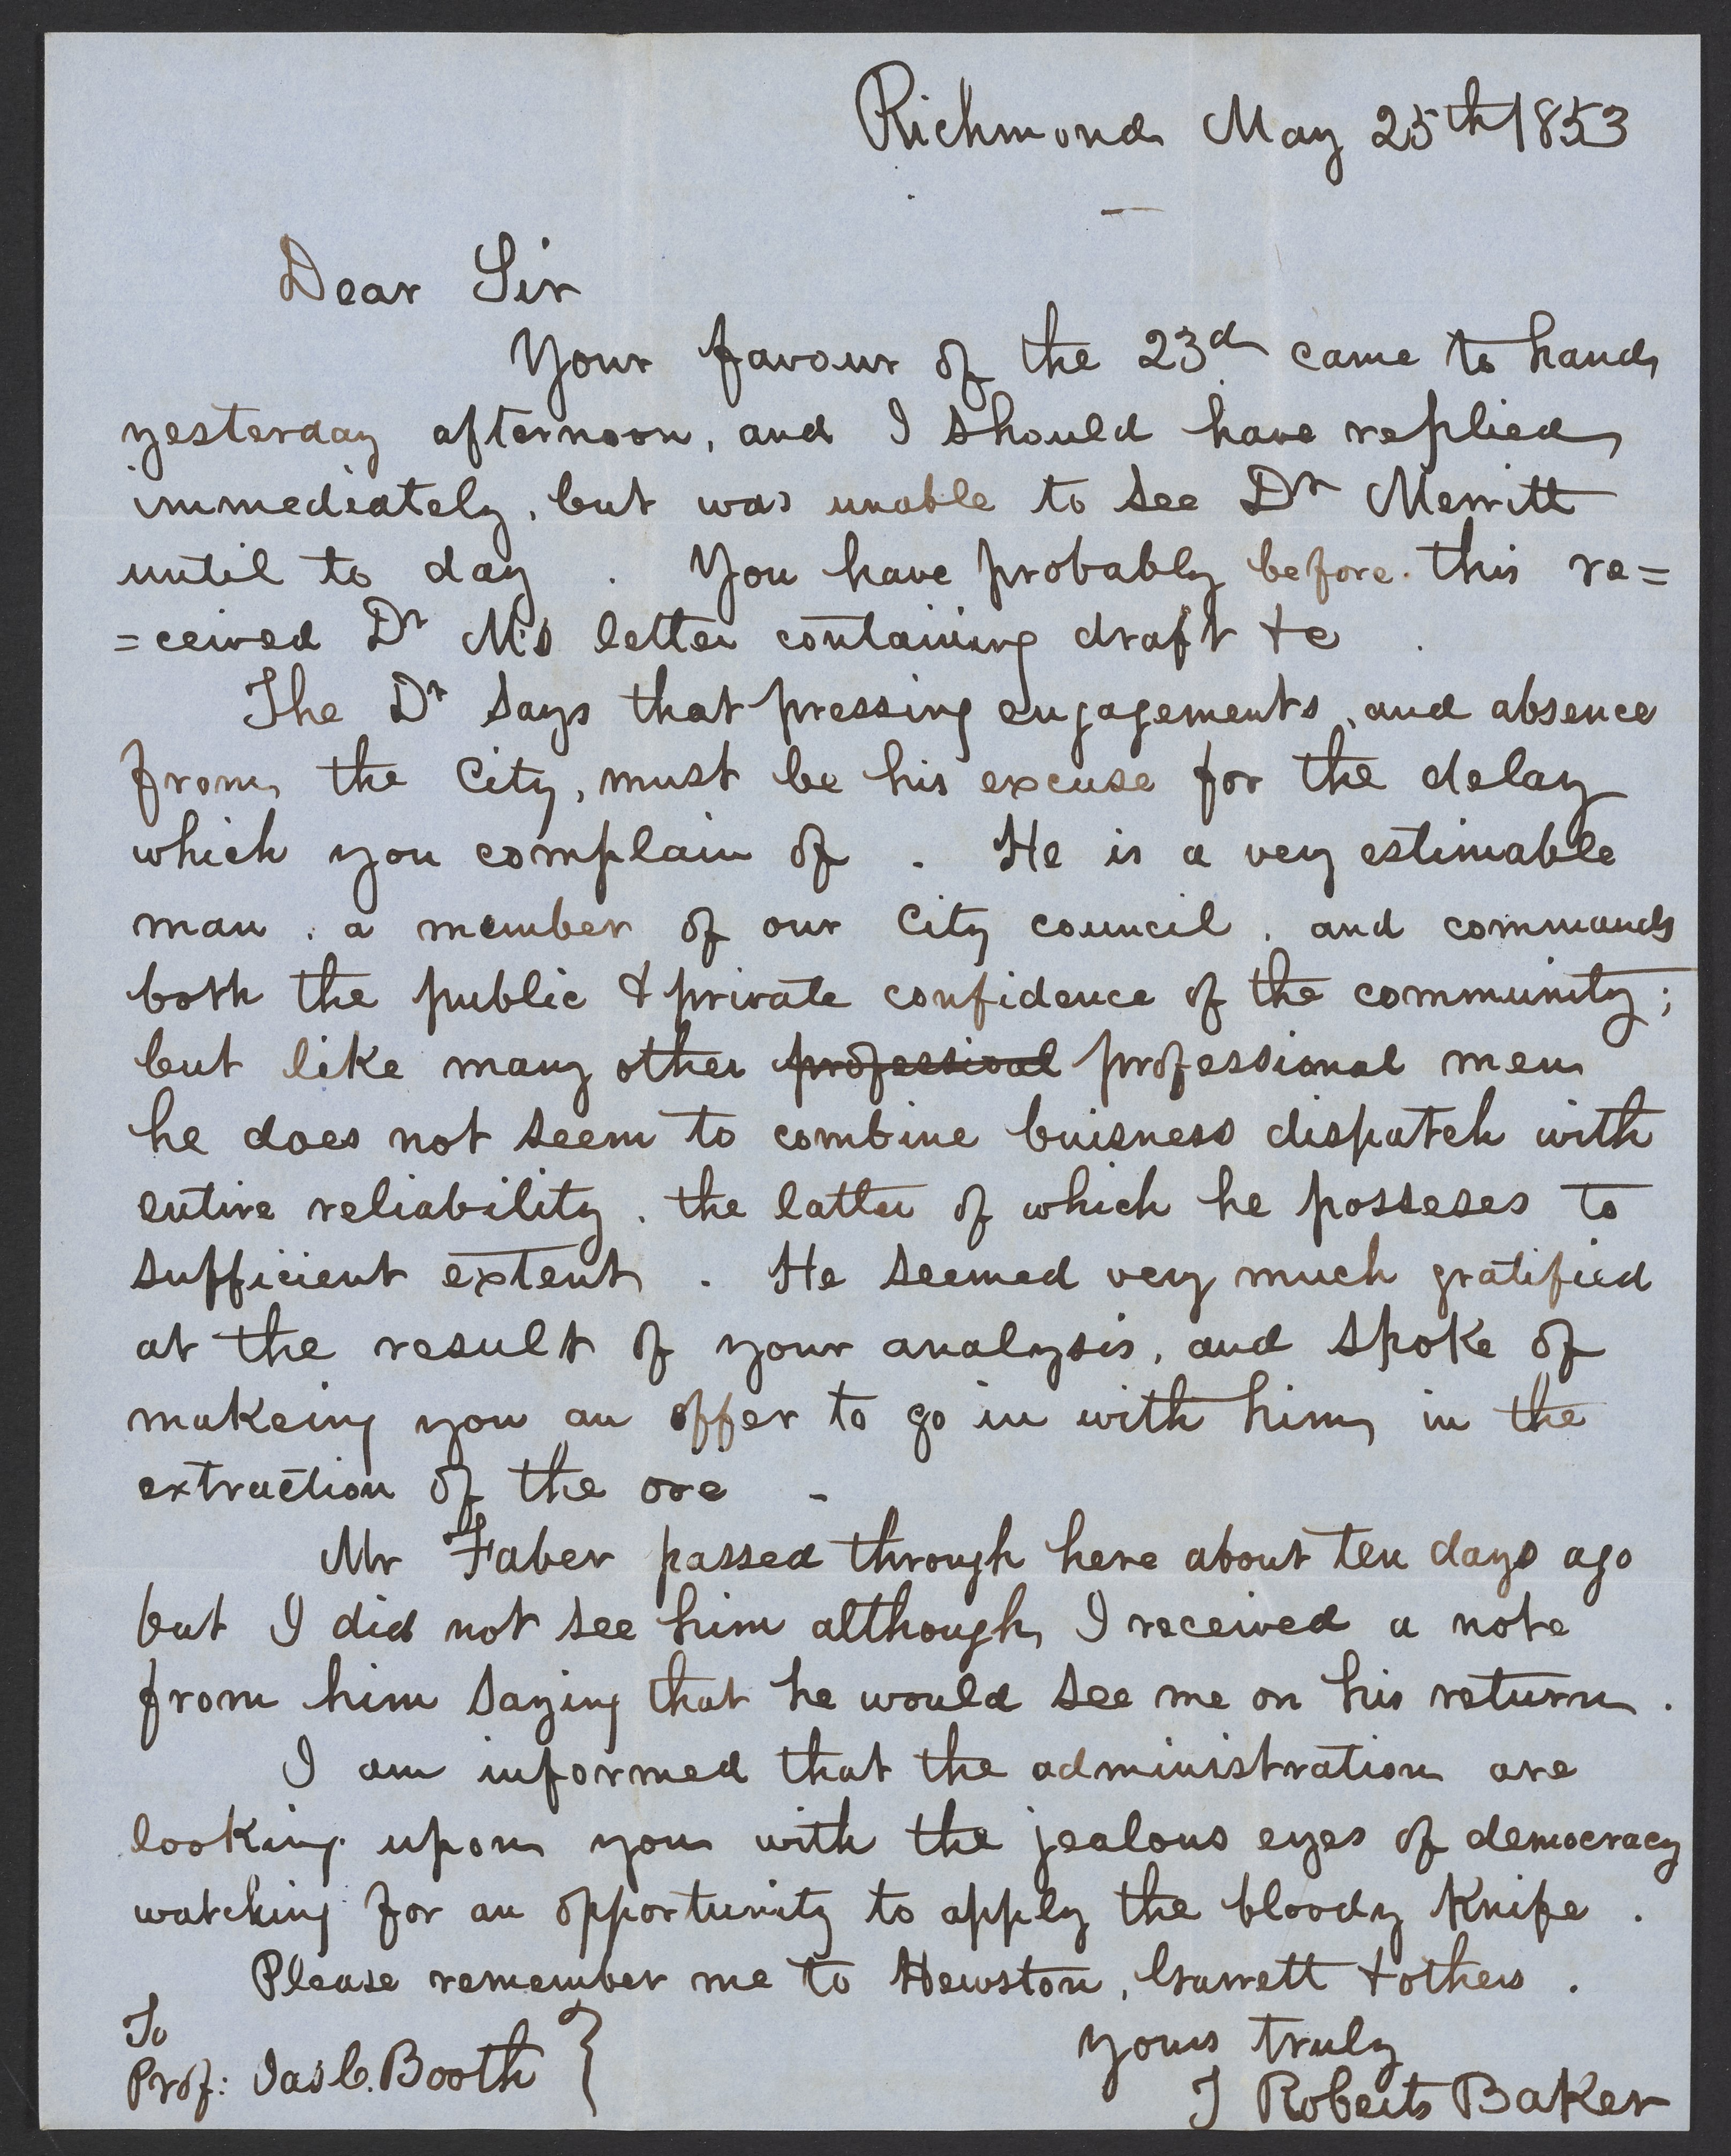 Richmond May 25th 1853
Dear Sir
Your favour of the 23d came to hand
yesterday afternoon, and I should have replied
immediately, but was unable to see Dr Merritt
until to day . You have probably before this re=
=ceived Dr M's letter containing draft &c .
The Dr says that pressing engagements, and absence
from the City, must be his excuse for the delay
which you complain of . He is a very estimable
man, a member of our City council, and commands
both the public & private confidence of the community;
but like many other professional professional men
he does not seem to combine buisness dispatch with
entire reliability, the latter of which he posseses to
sufficient extent . He seemed very much gratified
at the result of your analysis, and spoke of
makeing you an offer to go in with him in the
extraction of the ore -
Mr Faber passed through here about ten days ago
but I did not see him although I received a note
from him saying that he would see me on his return .
I am informed that the administration are
looking upon you with the jealous eyes of democracy
watching for an opportunity to apply the bloody Knife .
Please remember me to Hewston, Garrett & others .
To
Prof: Jas C. Booth }
yours truly
T Roberts Baker